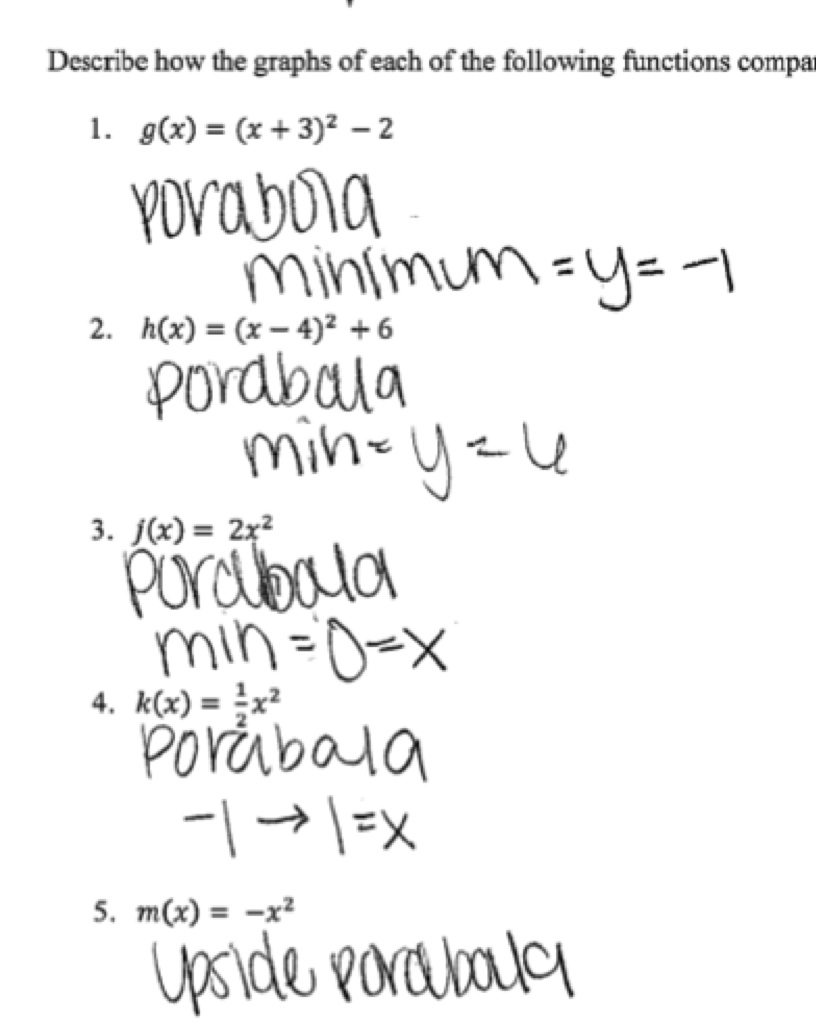 Describe how the graphs of each of the following functions compar
1. g(x) = (x + 3)² − 2
parabola
minimum = y = −1
2. h(x) = (x − 4)² + 6
parabala
min = y = 6
3. j(x) = 2x²
parabala
min = 0 = x
4. k(x) = ½x²
parabala
−1 → 1 = x
5. m(x) = −x²
Upside parabala